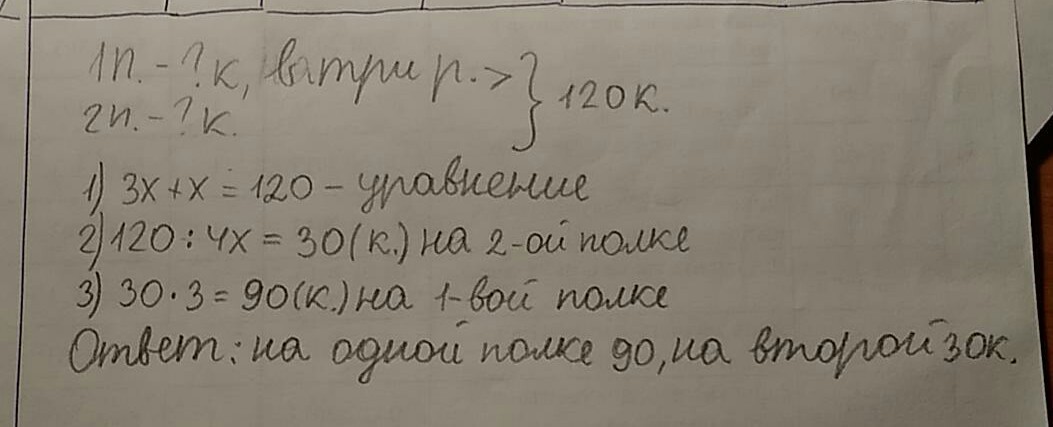 1п. - ? к, в три р. > } 120 к.
2п. - ? к.
1) 3х + х = 120 - уравнение
2) 120 : 4х = 30 (к.) на 2-ой полке
3) 30 · 3 = 90 (к.) на 1-вой полке
Ответ: на одной полке 90, на второй 30к.